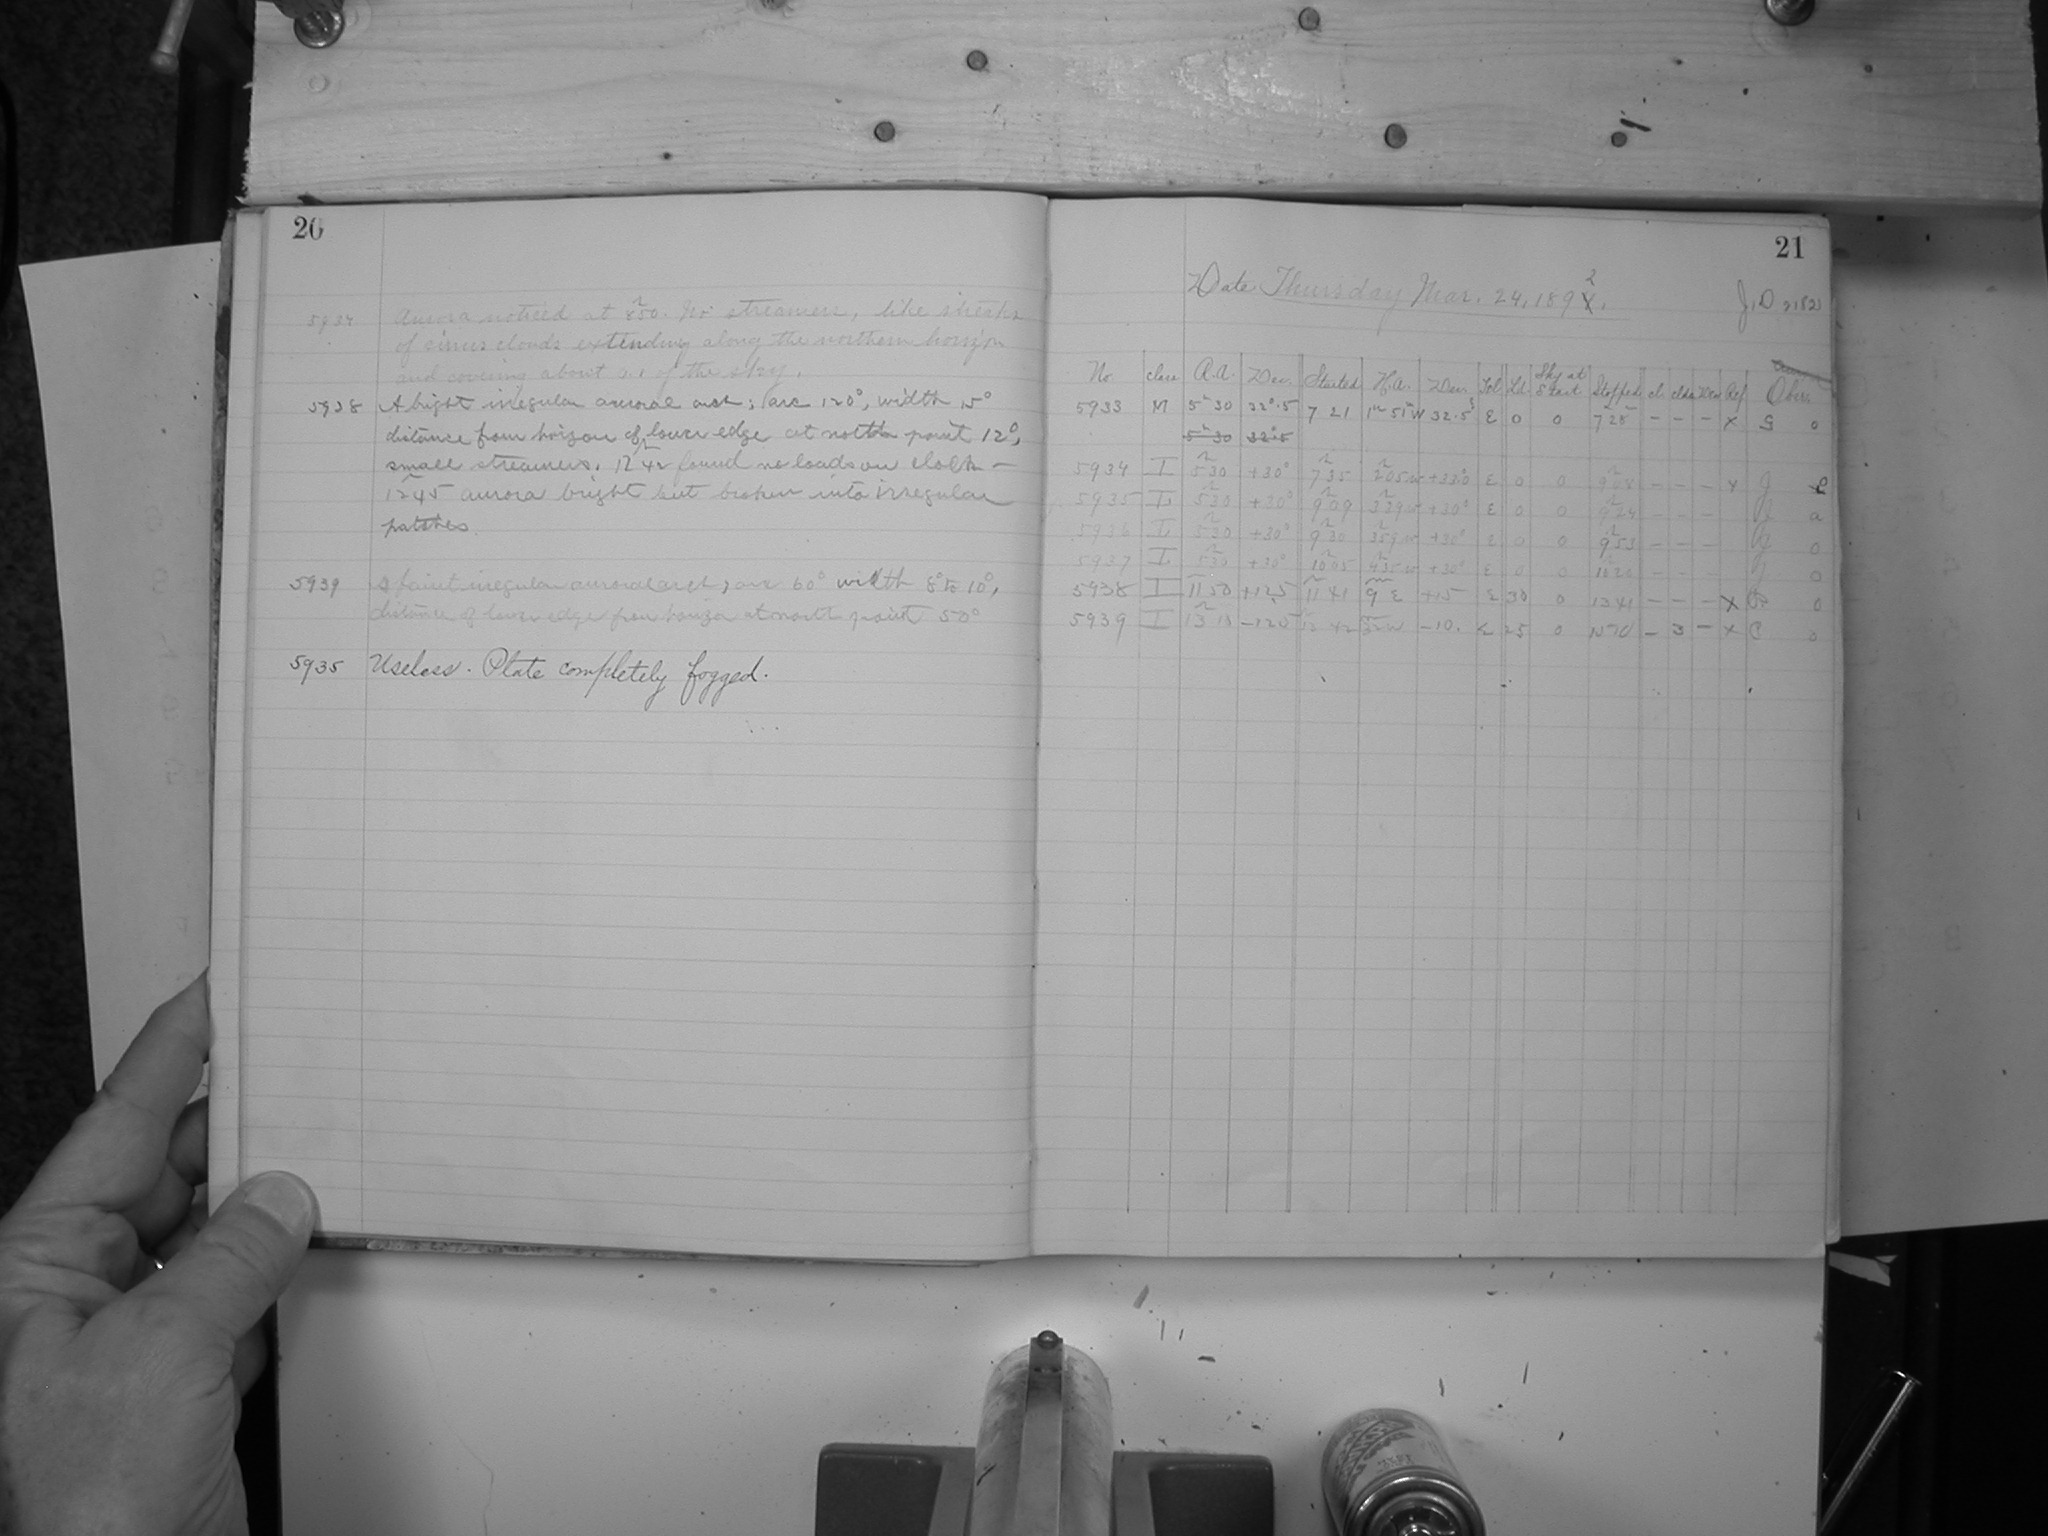 20
5934 Aurora noticed at 8h50. No streamers, like streaks
of cirrus clouds extending along the northern horizon
and covering about 0.1 of the sky.
5938 A bright irregular auroral arch; arc 120°, width 15°
distance from horizon of lower edge at north point 12°,
small streamers. 12h42 found no loads on clock —
12h45 aurora bright but broken into irregular
patches
5939 A faint irregular auroral arch, arc 60° width 8° to 10°,
distance of lower edge from horizon at north point 50°
5935 Useless. Plate completely fogged.
21
Date Thursday Mar. 24, 1892.
J.D.
No. class R.A. Dec. Started H.A. Dec. Tel Ld. Sky at Start Stopped cl clds Ref Obsr.
5933 M 5h 30 32°.5 7 21 1h 51m W 32.5 E 0 0 7 28 – – – x G 0
5h 30 32°.5
5934 I 5h30 +30° 7h35 2h05 W E 0 0 – – – x J
5935 I 5h30 +30° 9h09 3h39 W +30° E 0 0 9h24 – – – J 0
5936 I 5h30 +30° 9h30 3h59 W +30° E 0 0 9h53 – – – J 0
5937 I 5h30 +30° 10h05 4h35 W +30° E 0 0 – – – J 0
5938 I 11 50 +12.5 11 41 9 E +15 E 30 0 13 41 – – – x 0
5939 I 13 15 12 42 –10. E 25 0 – 3 – x C 0